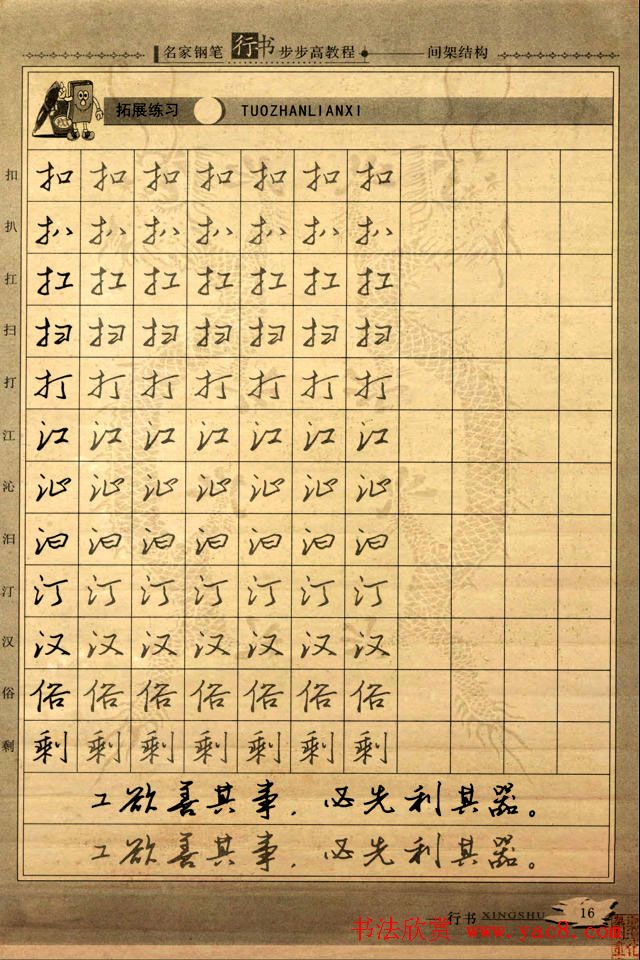 名家钢笔行书步步高教程 间架结构
拓展练习 TUOZHANLIANXI
扣 扣 扣 扣 扣 扣 扣 扣
扒 扒 扒 扒 扒 扒 扒 扒
扛 扛 扛 扛 扛 扛 扛 扛
扫 扫 扫 扫 扫 扫 扫 扫
打 打 打 打 打 打 打 打
江 江 江 江 江 江 江 江
沁 沁 沁 沁 沁 沁 沁 沁
汩 汩 汩 汩 汩 汩 汩 汩
汀 汀 汀 汀 汀 汀 汀 汀
汉 汉 汉 汉 汉 汉 汉 汉
俗 俗 俗 俗 俗 俗 俗 俗
剩 剩 剩 剩 剩 剩 剩 剩
工欲善其事，必先利其器。
工欲善其事，必先利其器。
行书 XINGSHU 16
书法欣赏 www.yac8.com